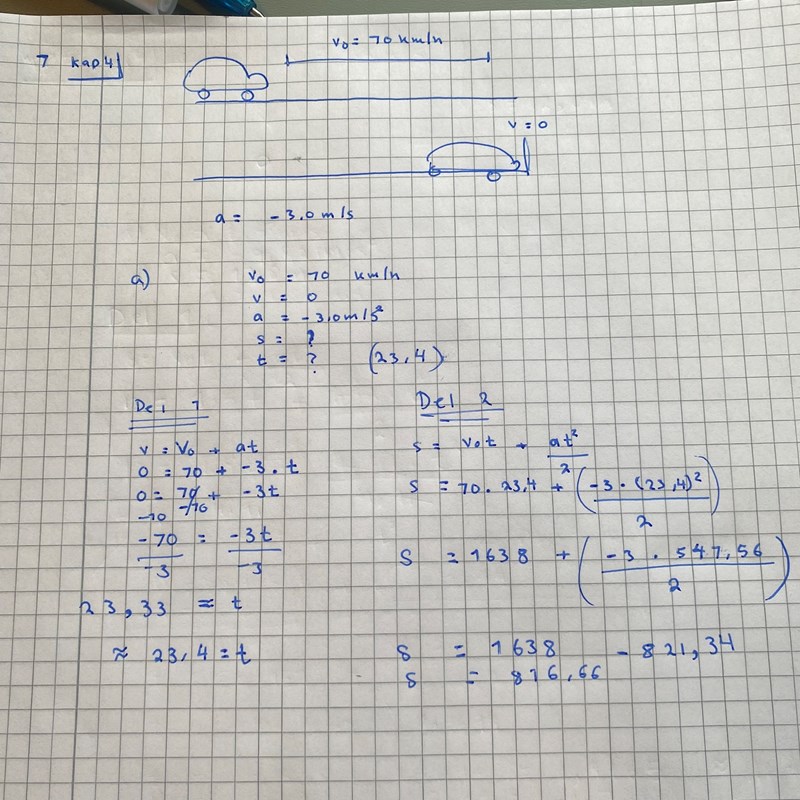 v₀ = 70 km/h
7 kap 4
v = 0
a = -3.0 m/s
a) v₀ = 70 km/h
v = 0
a = -3.0 m/s²
s = ?
t = ? (23,4)
Del 1
v = v₀ + at
0 = 70 + -3 · t
0 = 70 + -3t
-70 -70
-70/-3 = -3t/-3
23,33 = t
≈ 23,4 = t
Del 2
s = v₀t + at²/2
s = 70 · 23,4 + (-3 · (23,4)²/2)
s = 1638 + (-3 · 547,56/2)
s = 1638 - 821,34
s = 816,66